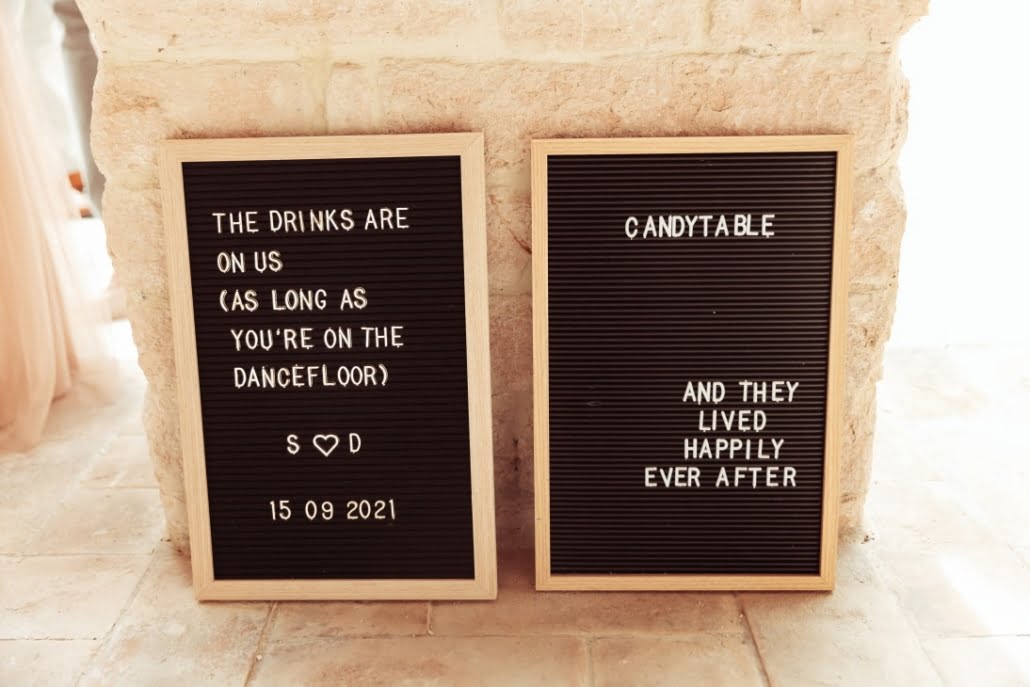 THE DRINKS ARE
ON US
(AS LONG AS
YOU'RE ON THE
DANCEFLOOR)
S ♡ D
15 09 2021
CANDYTABLE
AND THEY
LIVED
HAPPILY
EVER AFTER